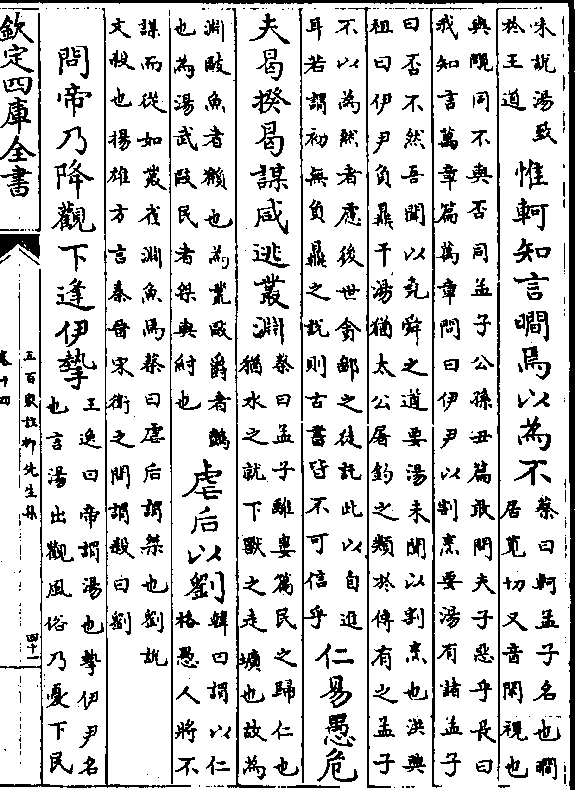 味說湯致
於王道
惟軻知言瞷焉以為不
蔡曰軻孟子名也瞷
居莧切又音閑視也
與覵同不與否同孟子公孫丑篇敢問夫子惡乎長曰
我知言萬章篇萬章問曰伊尹以割烹要湯有諸孟子
曰否不然吾聞以堯舜之道要湯未聞以割烹也洪興
祖曰伊尹負鼎干湯猶太公屠釣之類於傳有之孟子
不以為然者慮後世貪鄙之徒託此以自進
耳若謂初無負鼎之說則古書皆不可信乎
仁易愚危
夫曷揆曷謀咸逃叢淵
蔡曰孟子離婁篇民之歸仁也
猶水之就下獸之走壙也故為
淵敺魚者獺也為叢敺爵者鸇
也為湯武敺民者桀與紂也
虐后以劉
韓曰謂以仁
格愚人將不
謀而從如叢雀淵魚焉蔡曰虐后謂桀也劉說
文殺也揚雄方言秦晉宋衛之間謂殺曰劉
問帝乃降觀下逢伊摯
王逸曰帝謂湯也摯伊尹名
也言湯出觀風俗乃憂下民
欽定四庫全書
五百家註柳先生集
卷十四
四十一